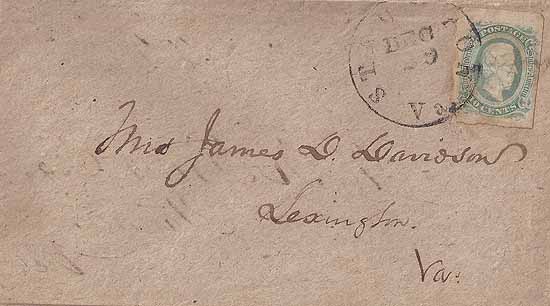 POSTAGE
10 CENTS
DEC
9
Va
Mrs James D. Davidson
Lexington.
Va.